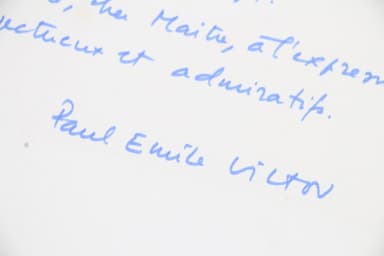 cher Maître, à l'expres
ectueux et admiratifs.
Paul Emile Victor